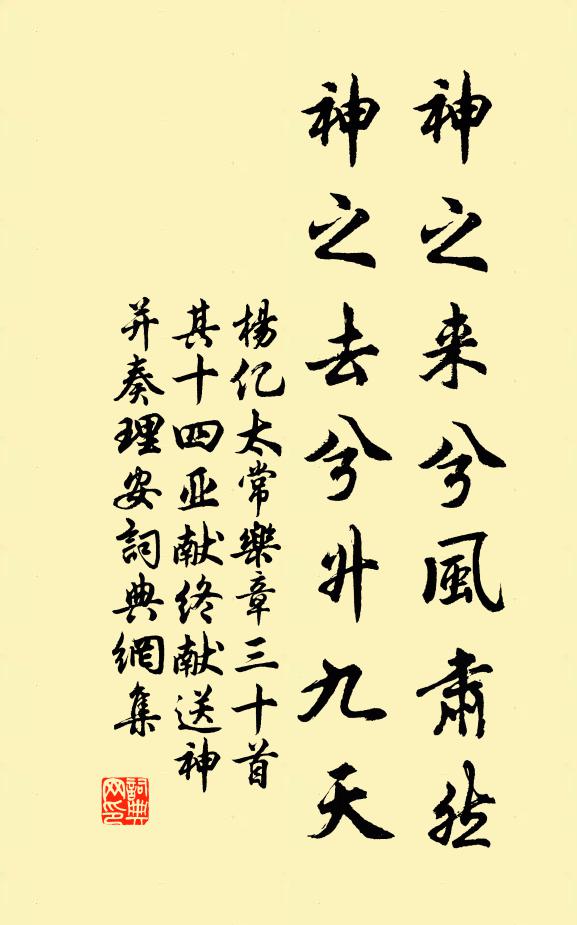 神之来兮風肅然
神之去兮升九天
楊亿太常樂章三十首
其十四亚献终献送神
并奏理安詞典網集
詞典网印